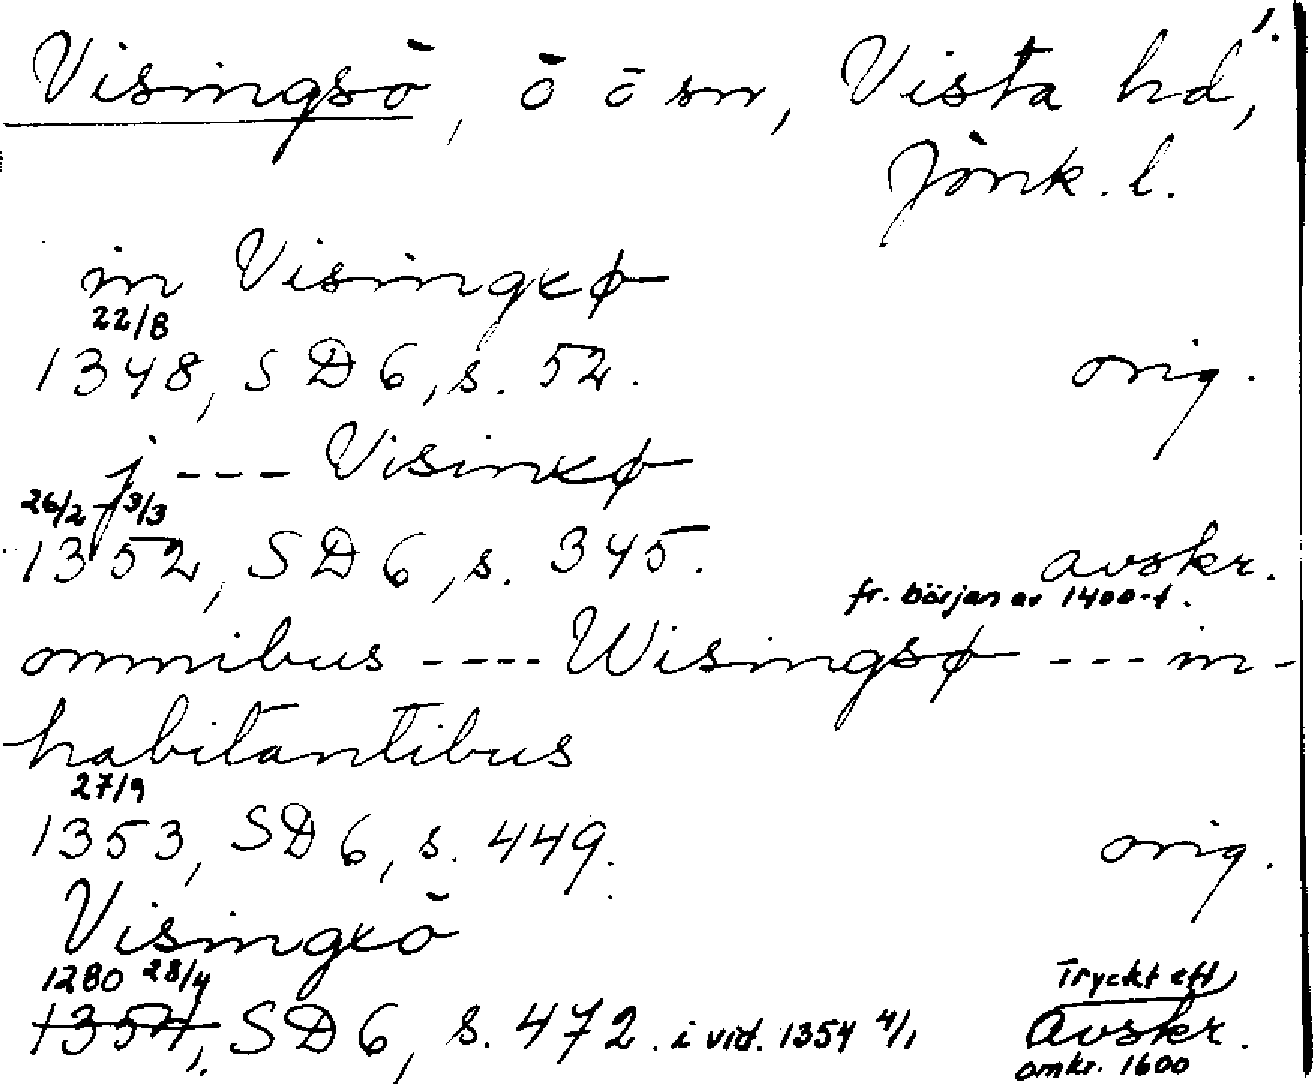 1.
Visingsö, ö o sn, Vista hd,
Jönk. l.
in Visingxø
22/8
1348, SD 6, s. 52. orig.
j --- Visinxø
26/2 - 3/3
1352, SD 6, s. 345. avskr.
fr. början av 1400-t.
omnibus ---- Wisingsø --- in-
habitantibus
27/9
1353, SD 6, s. 449. orig.
Visingxö
1280 28/4 Tryckt eft
1354, SD 6, s. 472. i vid. 1354 4/1 avskr.
omkr. 1600